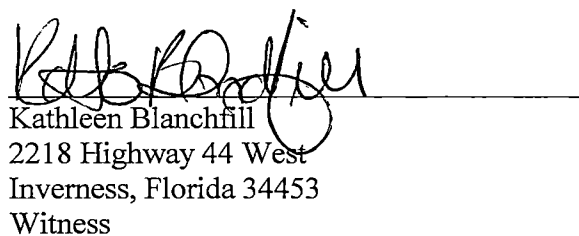 Kathleen Blanchfill
2218 Highway 44 West
Inverness, Florida 34453
Witness